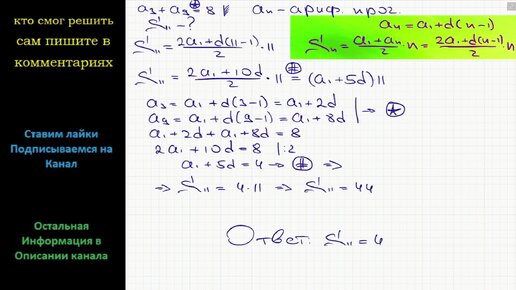 кто смог решить
сам пишите в
комментариях
Ставим лайки
Подписываемся на
Канал
Остальная
Информация в
Описании канала
a₃ + a₉ = 8 aₙ – ариф. прог.
S₁₁ – ?
aₙ = a₁ + d(n-1)
Sₙ = (a₁ + aₙ)/2 · n = (2a₁ + d(n-1))/2 · n
S₁₁ = (2a₁ + d(11-1))/2 · 11
S₁₁ = (2a₁ + 10d)/2 · 11 = (a₁ + 5d)11
a₃ = a₁ + d(3-1) = a₁ + 2d
a₉ = a₁ + d(9-1) = a₁ + 8d
a₁ + 2d + a₁ + 8d = 8
2a₁ + 10d = 8 |:2
a₁ + 5d = 4 → # ⇒
⇒ S₁₁ = 4·11 ⇒ S₁₁ = 44
Ответ: S₁₁ = 4